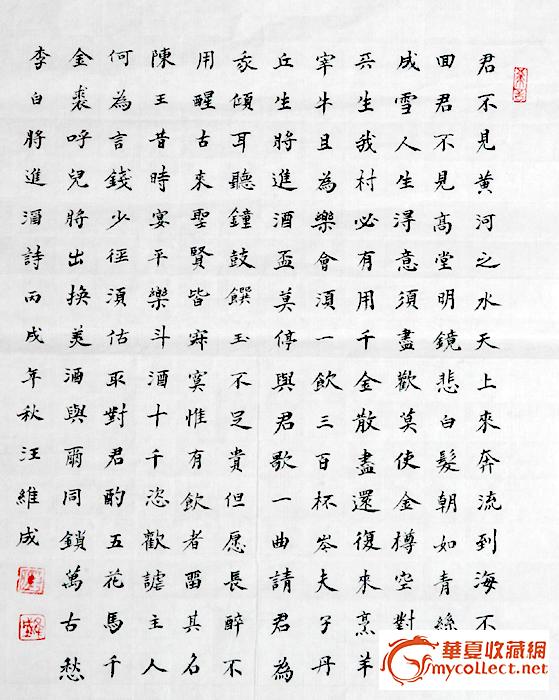 君不見黃河之水天上來奔流到海不
回君不見高堂明鏡悲白髮朝如青絲
成雪人生得意須盡歡莫使金樽空對
天生我村必有用千金散盡還復來烹羊
宰牛且為樂會須一飲三百杯岑夫子丹
丘生將進酒盃莫停與君歌一曲請君為
我傾耳聽鐘鼓饌玉不足貴但愿長醉不
用醒古來聖賢皆寂寞惟有飲者留其名
陳王昔時宴平樂斗酒十千恣歡謔主人
何為言錢少徑須估取對君酌五花馬千
金裘呼兒將出換美酒與爾同鎖萬古愁
李白將進酒詩丙戌年秋汪維成
華夏收藏網
mycollect.net